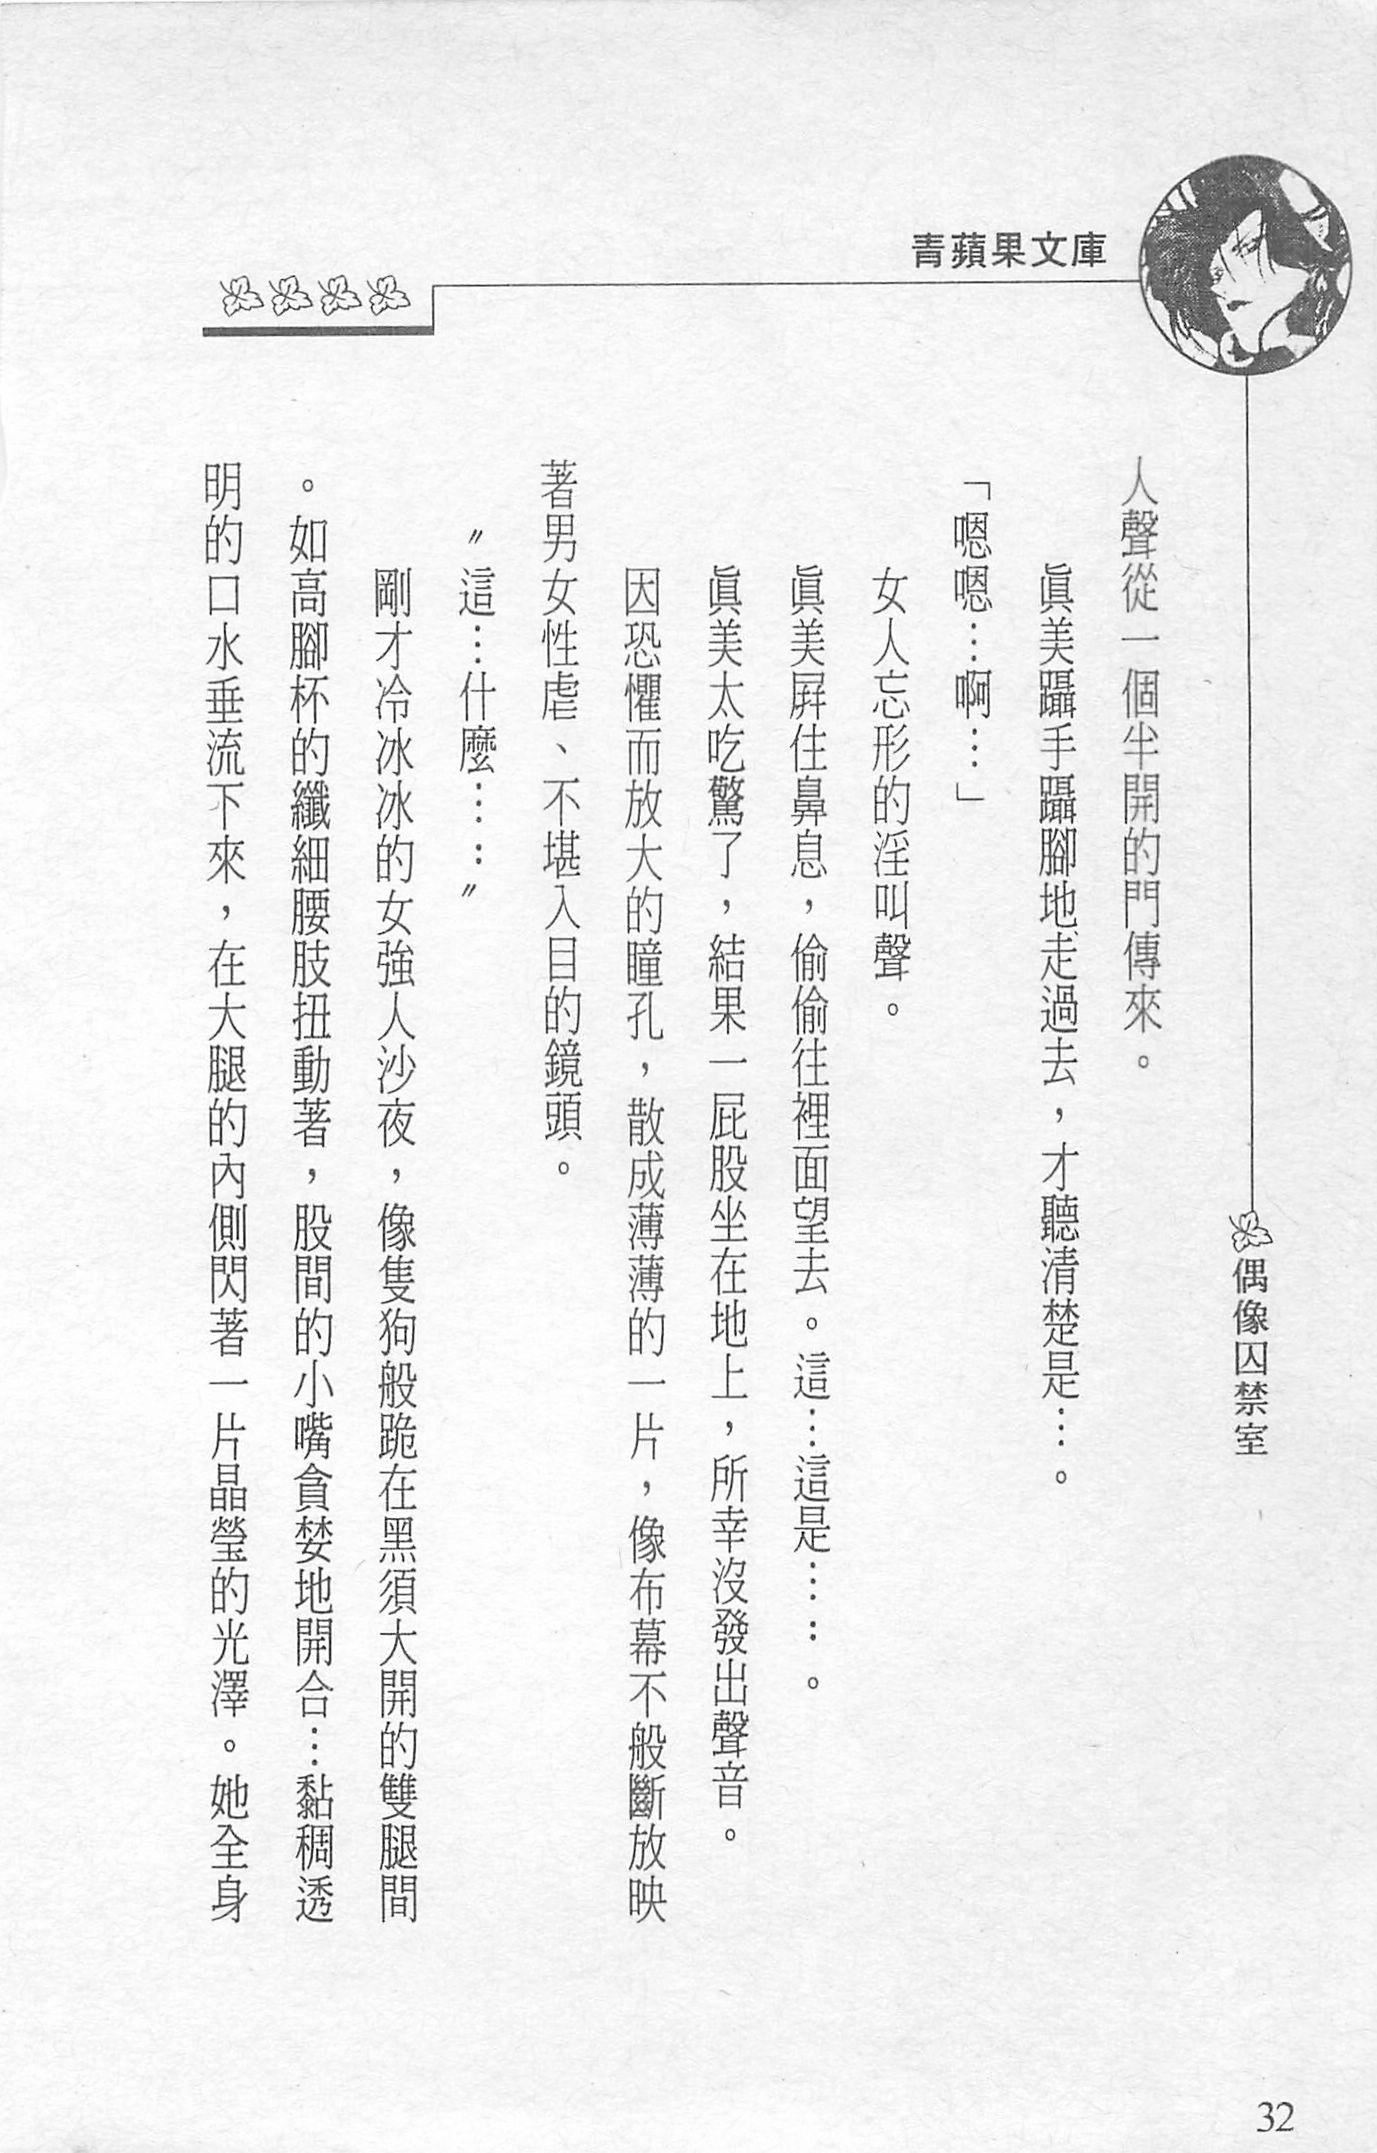 青蘋果文庫
偶像囚禁室
人聲從一個半開的門傳來。
眞美躡手躡腳地走過去，才聽清楚是…。
「嗯嗯…啊…」
女人忘形的淫叫聲。
眞美屛住鼻息，偷偷往裡面望去。這…這是……。
眞美太吃驚了，結果一屁股坐在地上，所幸沒發出聲音。
因恐懼而放大的瞳孔，散成薄薄的一片，像布幕不般斷放映
著男女性虐、不堪入目的鏡頭。
〝這…什麼……〞
剛才冷冰冰的女強人沙夜，像隻狗般跪在黑須大開的雙腿間
。如高腳杯的纖細腰肢扭動著，股間的小嘴貪婪地開合…黏稠透
明的口水垂流下來，在大腿的內側閃著一片晶瑩的光澤。她全身
32